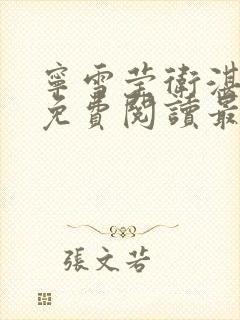 寧雪茔衛湛
免費閱讀最
張文若